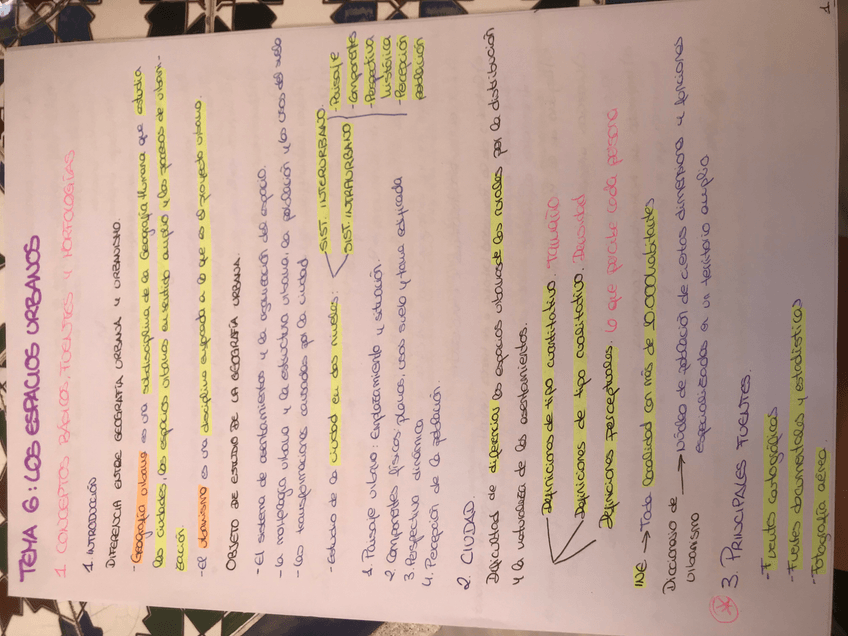 TEMA 6: LOS ESPACIOS URBANOS
1. CONCEPTOS BÁSICOS, FUENTES Y MORFOLOGÍAS
1. INTRODUCCIÓN
DIFERENCIA ENTRE GEOGRAFÍA URBANA Y URBANISMO.
- Geografía urbana es una subdisciplina de la Geografía Humana que estudia
las ciudades, los espacios urbanos en sentido amplio y los procesos de urbani-
zación.
- El urbanismo es una disciplina enfocada a lo que es el proyecto urbano.
OBJETO DE ESTUDIO DE LA GEOGRAFÍA URBANA.
- El sistema de asentamientos y la organización del espacio.
- La morfología urbana y la estructura urbana, la población y los usos del suelo
- Las transformaciones causadas por la ciudad.
- Estudio de la ciudad en dos niveles: SIST. INTERURBANO
SIST. INTRAURBANO
- Paisaje
- Componentes
- Perspectiva
histórica
- Percepción
población
1. Paisaje urbano: Emplazamiento y situación.
2. Componentes físicos: planos, usos suelo y trama edificada
3. Perspectiva dinámica
4. Percepción de la población.
2. CIUDAD.
Dificultad de diferenciar los espacios urbanos de los rurales por la distribución
y la naturaleza de los asentamientos.
Definiciones de tipo cuantitativo. Tamaño
Definiciones de tipo cualitativo. Densidad
Definiciones perceptuales. Lo que percibe cada persona
INE → Toda localidad con más de 10.000 habitantes
Diccionario de → Núcleo de población de ciertas dimensiones y funciones
Urbanismo especializadas en un territorio amplio
* 3. PRINCIPALES FUENTES
- Fuentes cartográficas
- Fuentes documentales y estadísticas
- Fotografía aérea.
1